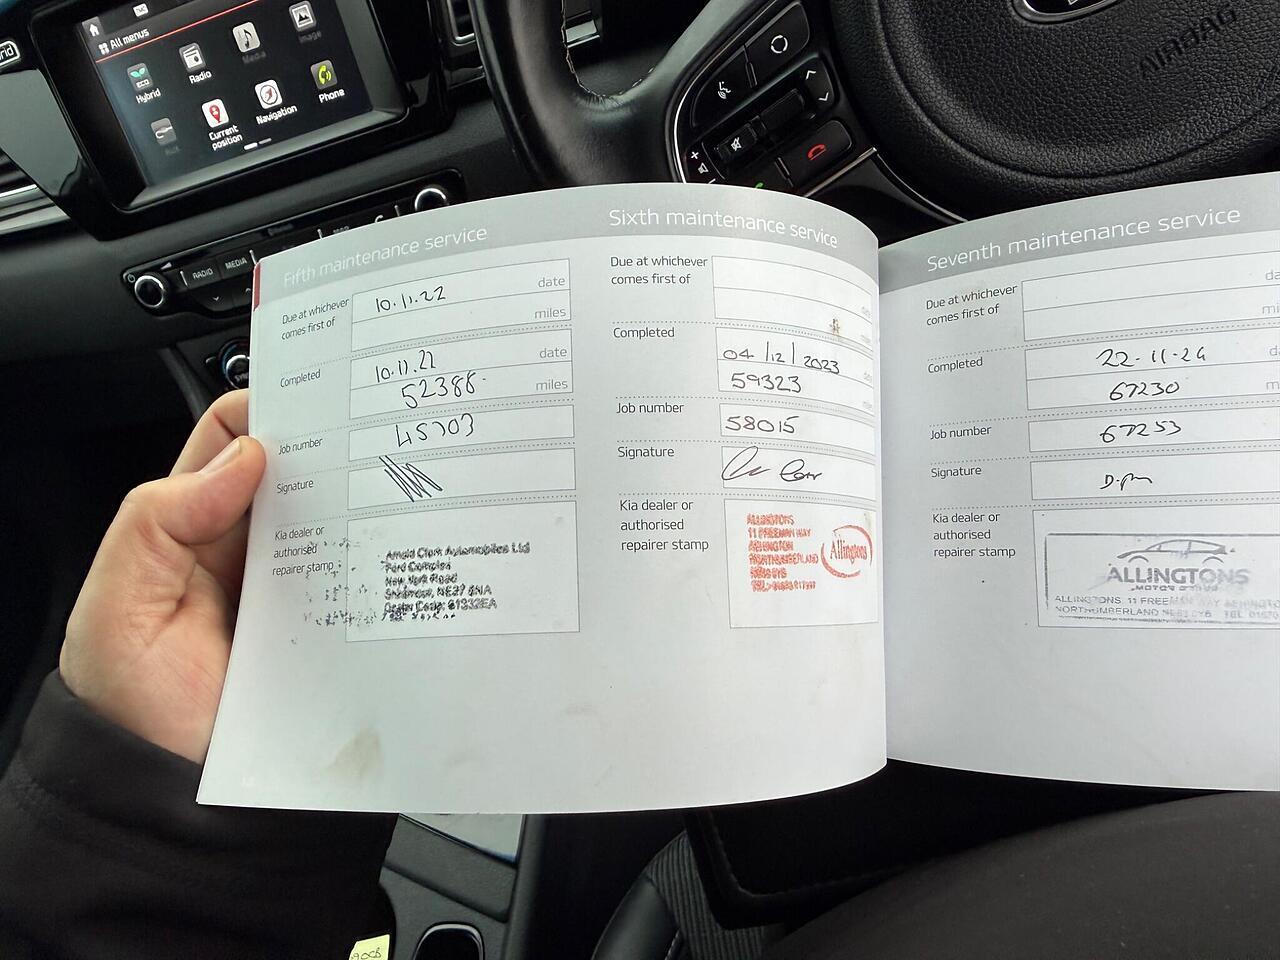 All menus
Hybrid
Radio
Media
Image
Current
position
Navigation
Phone
RADIO
MEDIA
AIRBAG
Fifth maintenance service
Due at whichever
comes first of
10.11.22
date
miles
Completed
10.11.22
date
52388
miles
Job number
45703
Signature
Kia dealer or
authorised
repairer stamp
Arnold Clark Automobiles Ltd
Ford Complex
New York Road
Shiremoor, NE27
Dealer Code:
Sixth maintenance service
Due at whichever
comes first of
Completed
04/12/2023
59323
Job number
58015
Signature
Kia dealer or
authorised
repairer stamp
ALLINGTONS
11 FREEMAN WAY
ASHINGTON
NORTHUMBERLAND
Allingtons
Seventh maintenance service
Due at whichever
comes first of
Completed
22-11-24
67230
Job number
67253
Signature
Kia dealer or
authorised
repairer stamp
ALLINGTONS
ALLINGTONS, 11 FREEMAN WAY
NORTHUMBERLAND
TEL